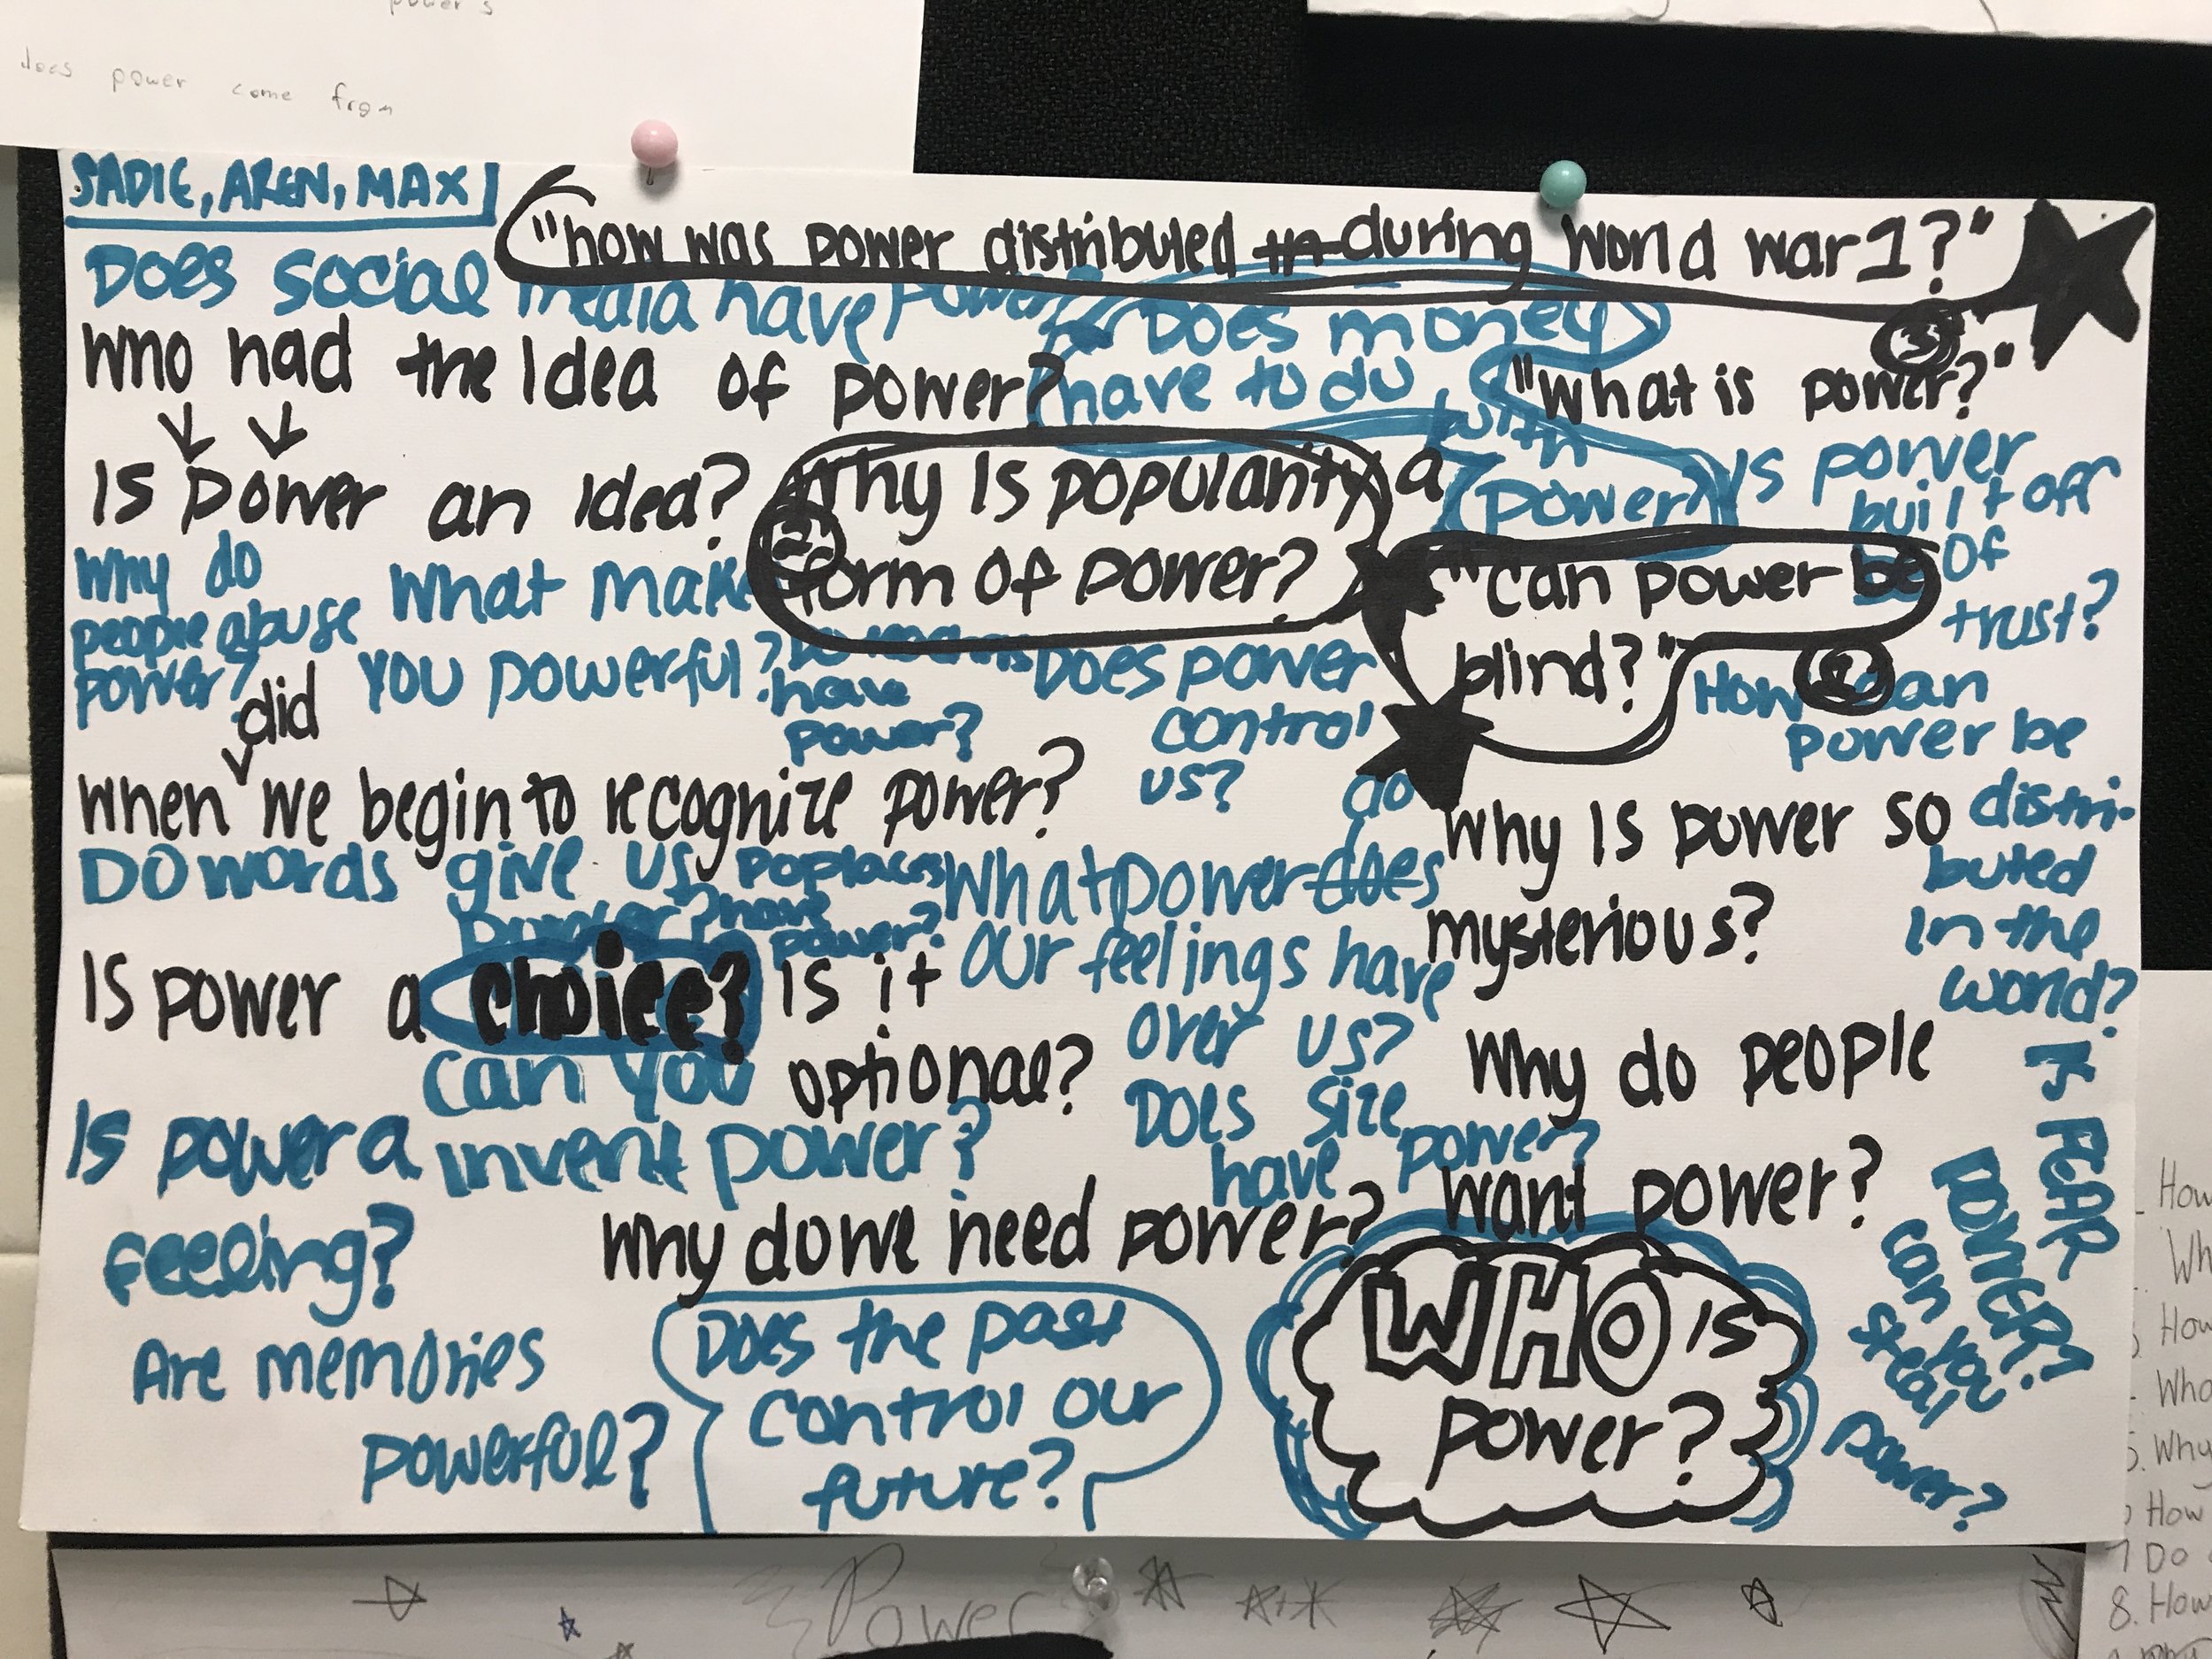 power's
does power come from
SADIE, AREN, MAX
"how was power distributed in during world war 1?"
3
Does social media have power?
Does money
have to do
with
power?
who had the Idea of power?
"what is power?"
Is power an Idea?
2
why Is popularity a
form of power?
Is power
built off
of
trust?
"can power be
blind?"
Why do
people abuse
power?
What make
you powerful?
have
power?
Does power
control
us?
How can
power be
distri-
buted
in the
world?
did
when we begin to recognize power?
Do words give us
power?
Do places
have
power?
do
What power does
our feelings have
over us?
why is power so
mysterious?
Is power a choice? Is it
optional?
can you
invent power?
Does size
have power?
Why do people
want power?
Is power a
feeling?
Why do we need power?
IS FEAR
POWER?
can you
steal
power?
Are memories
powerful?
Does the past
control our
future?
WHO is
power?
Power
How
Wh
How
Wha
5. Why
How
7 Do
8. How